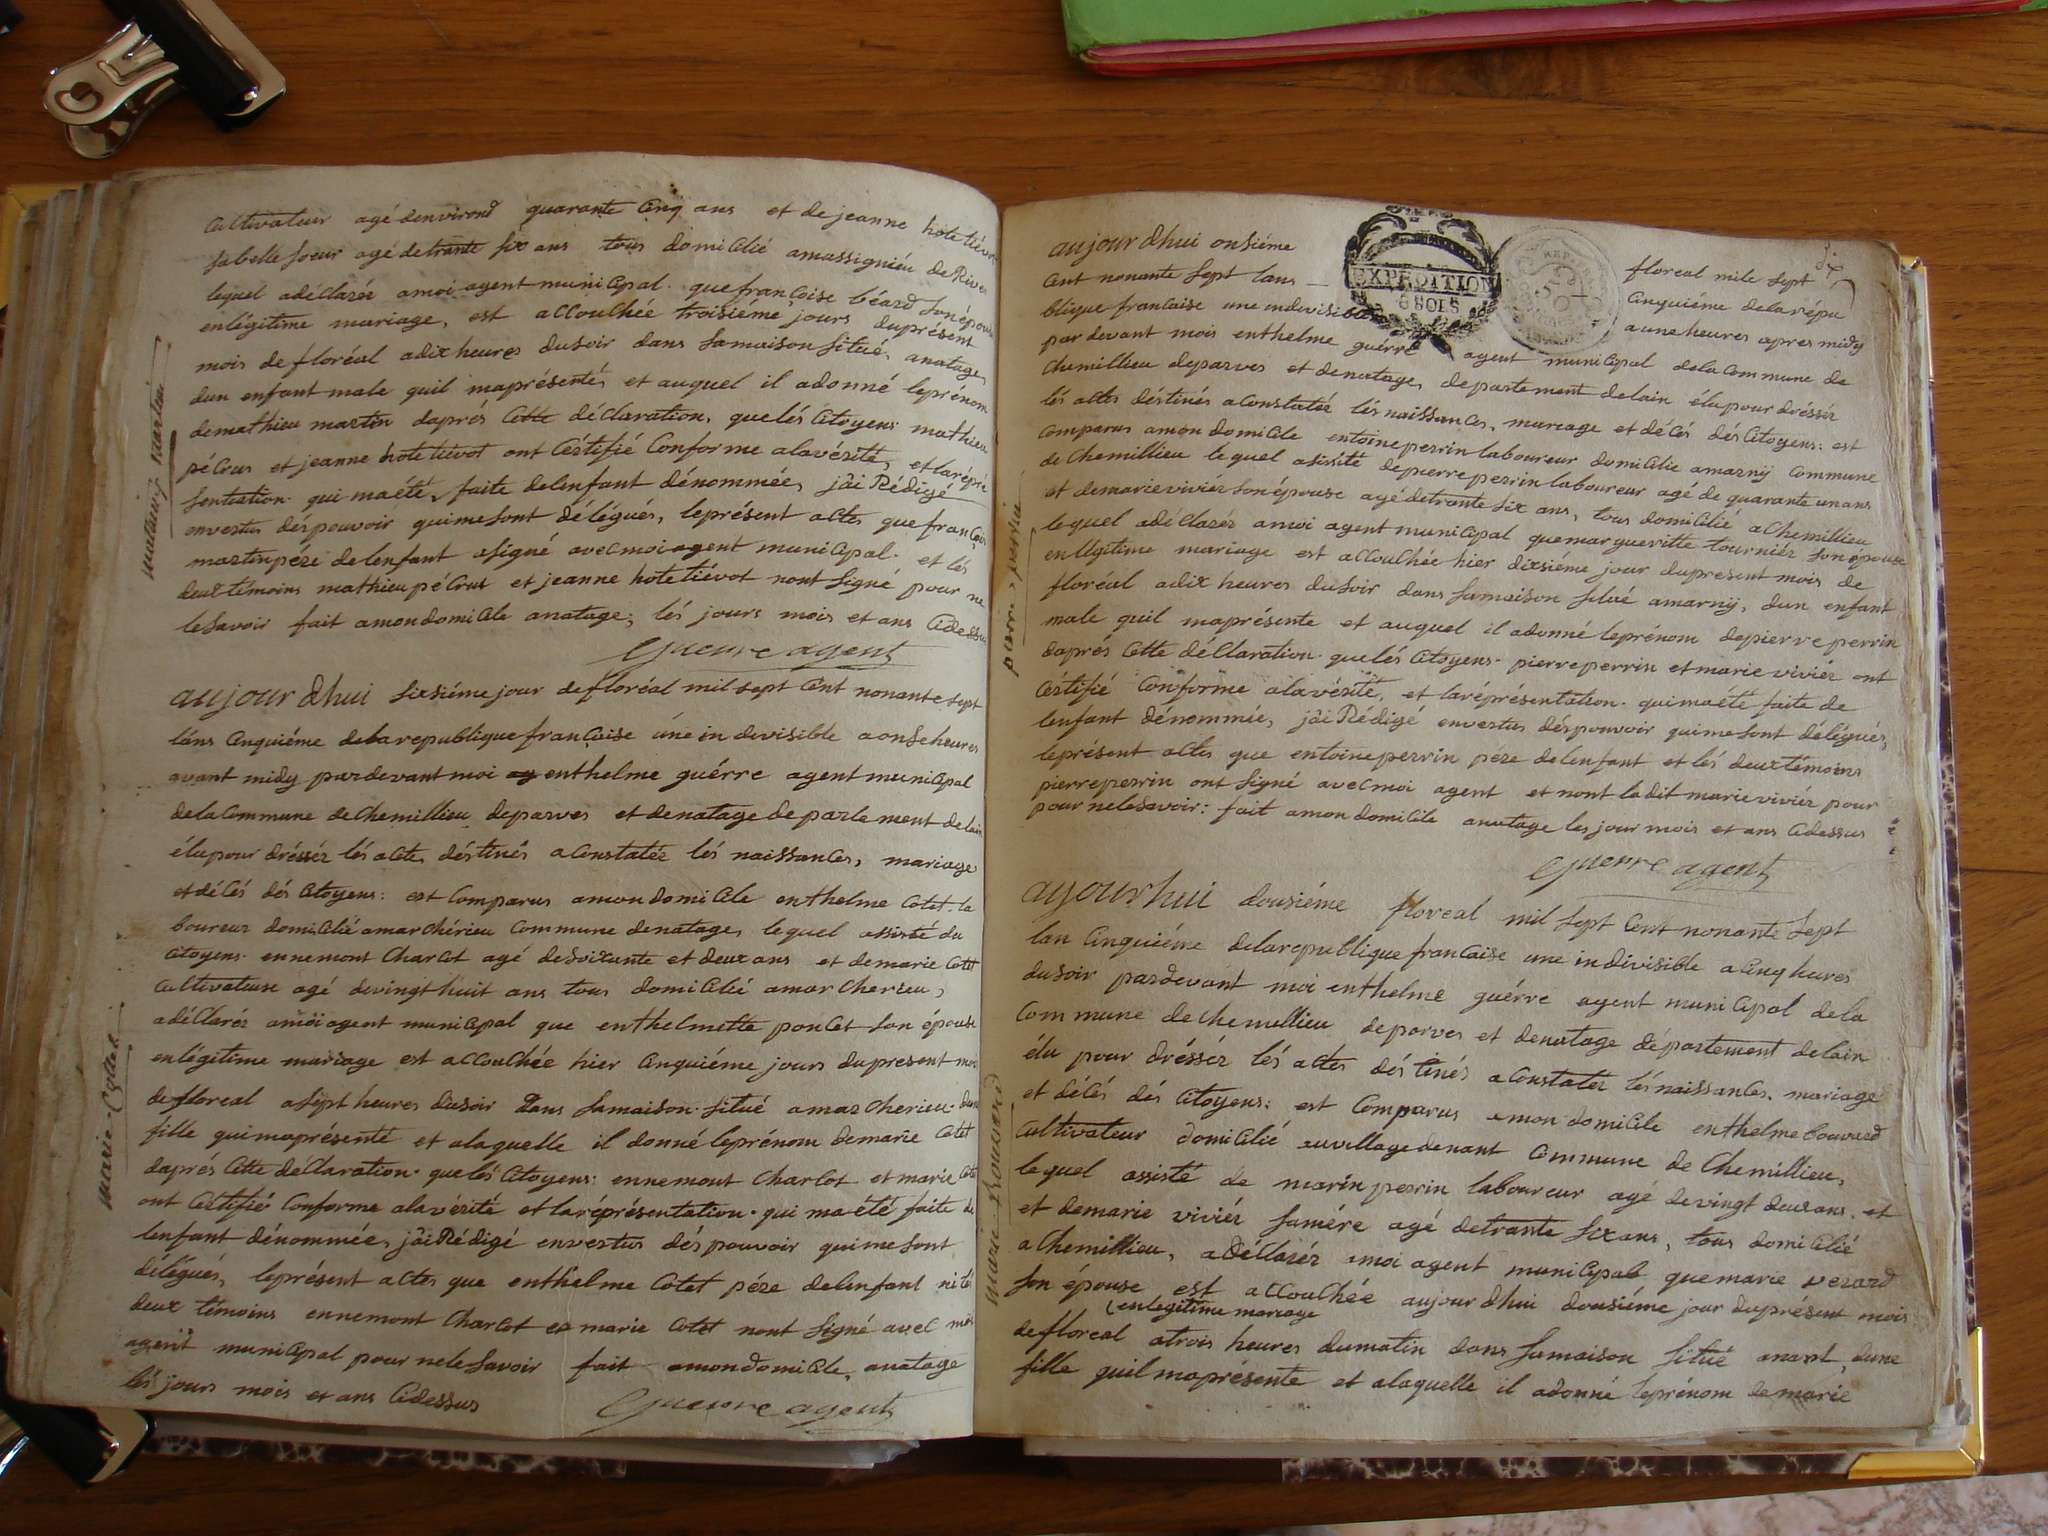 cultivateur agé denvirond quarante Cinq ans et de jeanne hotetiévot
sabelle soeur agé detrante six ans tous domicilié amassignieu de Rives
lequel adéclarés amoi agent municipal. que françoise béard sonépouse
enlégitime mariage, est accouchée troisième jours duprésent
mois de floréal adix heures dusoir dans samaison situé, anatage,
dun enfant male quil maprésentés et auquel il adonné leprénom
demathieu martin daprés Cette déclaration, quelés Citoyens mathieu
pécrus et jeanne hotetiévot ont Cértifié Conforme alavérité, et laréprè
sentation qui maété, faite delenfant dénommée, jâi Rédigé
envertus déspouvoir quimesont délégués, leprésent actes que françois
martin pére delenfant asigné avecmoiagent municipal. et lés
deuxtémoins mathieu pécrus et jeanne hotetiévot nont signé pour ne
lesavoir fait amondomicile anatage; lés jours mois et ans Cidessus
Guerre agent
mathieu martin
aujour dhui sixsiéme jour defloréal mil sept Cent nonante sept
lâns Cinquiéme delarepubliquefrançaise úne in devisible aonseheures
avant midy pardevant moi ag enthelme guérre agent municipal
delacommune dechemillieu deparves et denatage departement delain
élupour dréssér lés actes déstinés aconstatér lés naissances, mariage
etdéCés dés Citoyens: est Comparus amon domicile enthelme Cotet. la
boureur domicilié amarchérieu Commune denatage, lequel assisté du
Citoyens ennemont Charlot agé desoixante et deux ans et demarie Cotet
Cultivateure agé devingt huit ans tous domicilié amarcherieu,
adéclarés amôi agent municipal que enthelmette poncet son épouse
enlégitime mariage est accouchée hier Cinquiéme jours dupresent mois
defloreal asept heures dusoir dans samaison situé amarcherieu. dune
fille quimaprésenté et alaquelle il donné leprénom demarie Cotet
daprés Cette déclaration. quelés Citoyens: ennemont Charlot et marie Cotet
ont Cértifié Conforme alavérité et laréprésentation. qui maété faite de
lenfant dénommée, jâiRédigé envertus dés pouvoir quimesont
délégués, leprésent actes que enthelme Cotet pére delenfant ni lés
deux témoins ennemont Charlot et marie Cotet nont signé avec moi
agent municipal pour nelesavoir fait amondomicile, anatage
lés jours mois et ans Cidessus
Guerre agent
marie Cotet
aujour dhui onsiéme floreal mile sept
Cent nonante sept lans Cinquiéme delarépu
blique francaise une indivisible auneheures apres midy
EXPEDITION
8 SOLS
par devant mois enthelme guérre agent municipal delacommune de
Chemillieu deparves et denatage, departement delain élupour dréssér
lés actes déstinés aconstatér lésnaissances, mariage et déCés dés Citoyens: est
Comparus amon domicile entoine perrin laboureur domicilie amarnÿ Commune
de Chemillieu lequel asisité depierre perrin laboureur agé de quarante unans
et demarie viviér sonépouse agé detrante six ans, tous domicilié achemillieu
lequel adéclarér amoi agent municipal quemargueritte tourniér sonépouse
enlégitime mariage est accouchée hier dixsiéme jour dupresent mois de
floréal adix heures dusoir dans samaison situé amarnÿ, dun enfant
male quil maprésente et auquel il adonné leprénom depierre perrin
daprés Cette déclaration. quelés Citoyens. pierre perrin et marie viviér ont
Cértifié Conforme alavérité, et laréprésentation. quimaété faite de
lenfant dénommée, jâi Rédigé envertus déspouvoir quimesont délégués,
leprésent actes que entoineperrin pére delenfant et lés deuxtémoins
pierreperrin ont signé avecmoi agent et nont ladit marieviviér pour
pour nelésavoir: fait amon domicile anatage les jour mois et ans Cidessus
Guerre agent
pierre perrin
ajour?hui dousiéme floreal mil sept Cent nonante sept
lan Cinquiéme delarepublique francaise une indivisible acinq hures
dusoir pardevant moi enthelme guérre agent municipal dela
Commune dechemellieu deparves et denatage département delain
élu pour dréssér lés actes déstinés aconstater lésnaissances, mariage
et déCés dés Citoyens: est Comparus amon domicile enthelme bouvard
Cultivateur domicilié auvillage denant Commune de Chemillieu,
lequel assisté de marin perrin laboureur agé devingt deuxans. et
et demarie viviér samére agé detrante six ans, tous domicilié
achemillieu, adéclarér amoi agent municipal quemarie verard
son épouse est accouchée aujour dhui dousiéme jour duprésent mois
enlegitime mariage
defloreal atrois heures dumatin dans samaison situé anant, dune
fille quil maprésente et alaquelle il adonné leprénom demarie
marie Bouvard